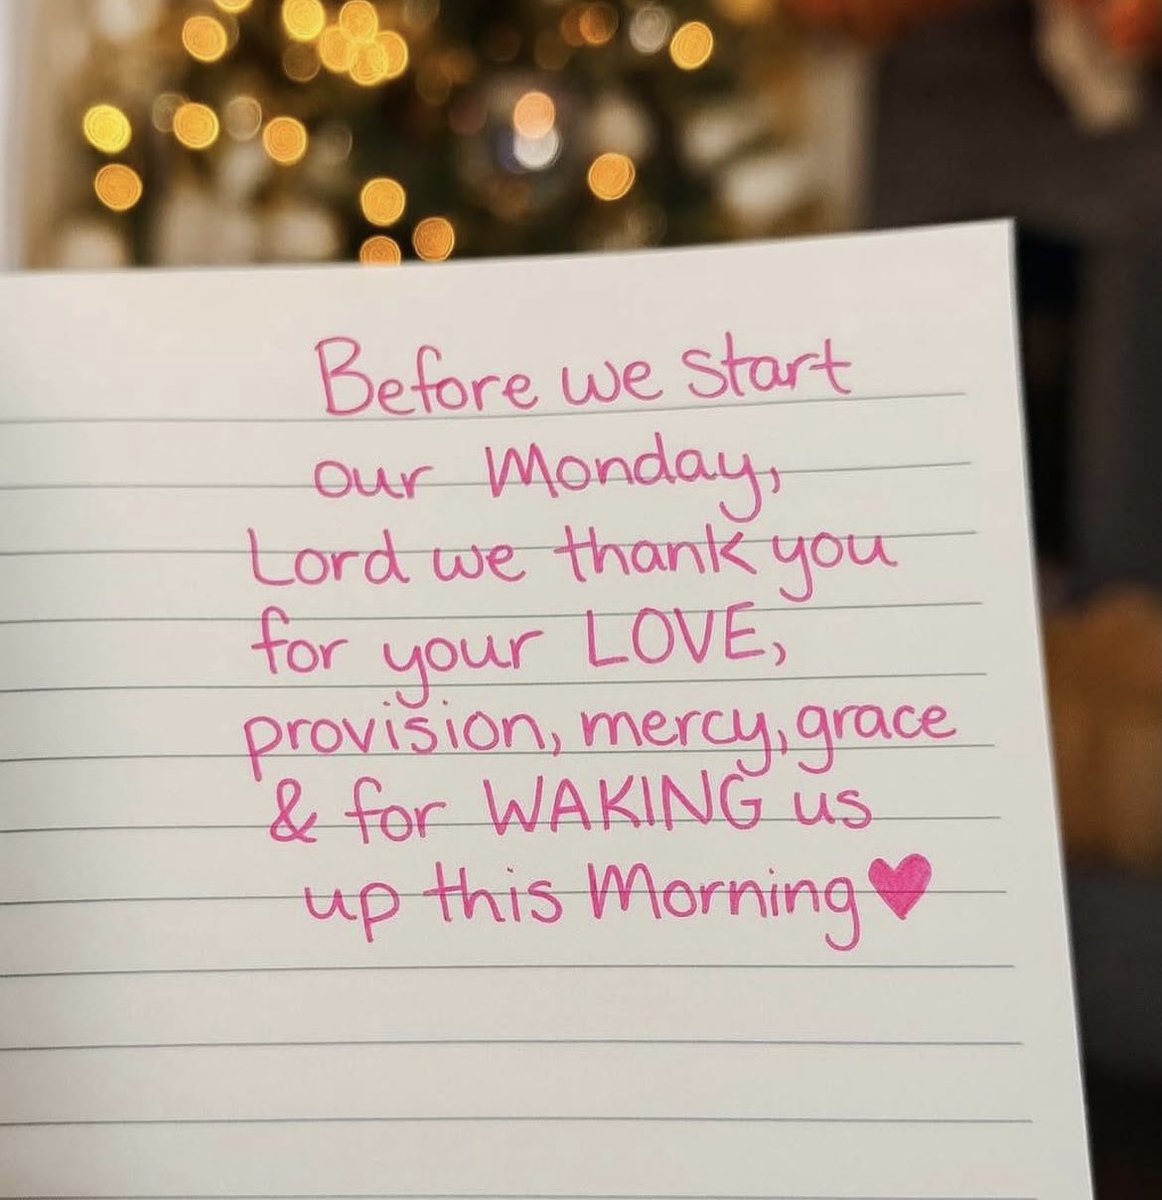 Before we start
our Monday,
Lord we thank you
for your LOVE,
provision, mercy, grace
& for WAKING us
up this Morning